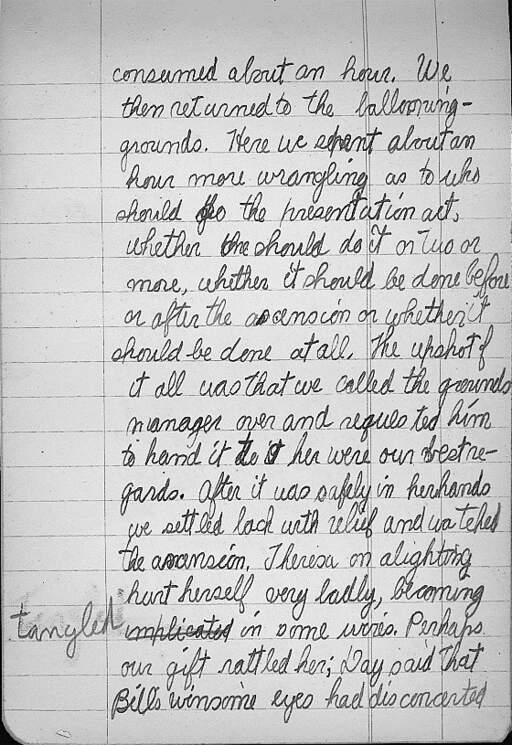 consumed about an hour. We
then returned to the ballooning-
grounds. Here we spent about an
hour more wrangling as to who
should do the presentation act,
whether one should do it or two or
more, whether it should be done before
or after the ascension or whether it
should be done at all. The upshot of
it all was that we called the grounds
manager over and requested him
to hand it to her were our best re-
gards. After it was safely in her hands
we settled back with relief and watched
the ascension. Theresa on alighting
hurt herself very badly, becoming
tangled implicated in some wires. Perhaps
our gift rattled her; Day said that
Bill's winsome eyes had disconcerted